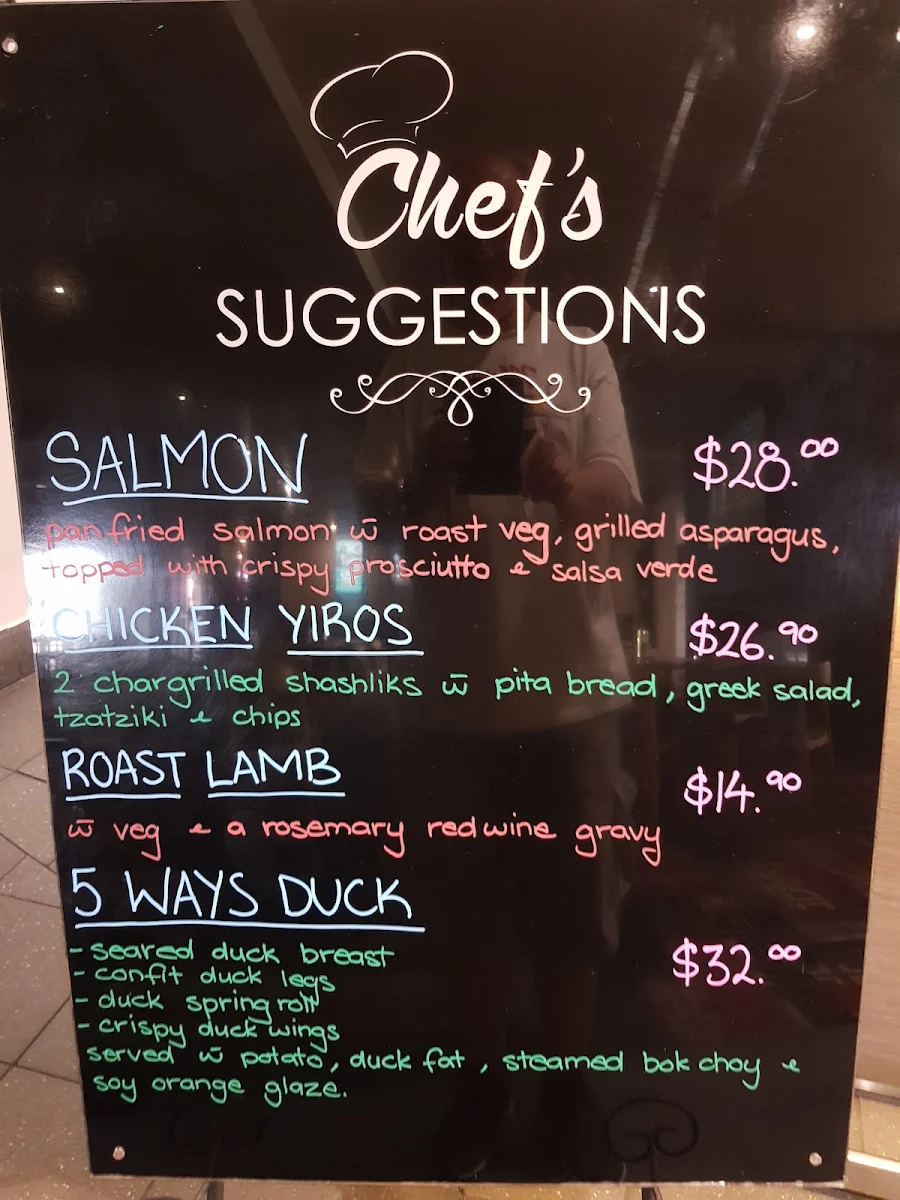 Chef's
SUGGESTIONS
SALMON $28.00
pan fried salmon w̅ roast veg, grilled asparagus,
topped with crispy prosciutto & salsa verde
CHICKEN YIROS $26.90
2 chargrilled shashliks w̅ pita bread, greek salad,
tzatziki & chips
ROAST LAMB $14.90
w̅ veg & a rosemary red wine gravy
5 WAYS DUCK
- seared duck breast $32.00
- confit duck legs
- duck spring roll
- crispy duck wings
served w̅ potato, duck fat, steamed bok choy &
soy orange glaze.